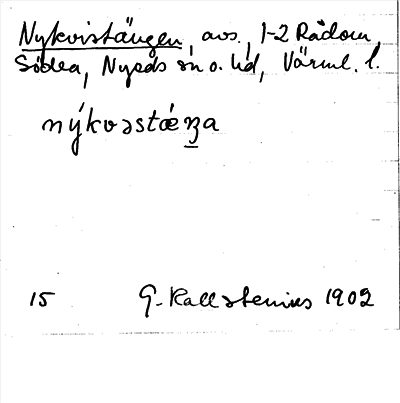 Nykvistängen, avs., 1-2 Rådom,
Södra, Nyeds sn o. hd, Värml. l.
nýkvəstǽŋa
15 G. Kallstenius 1902